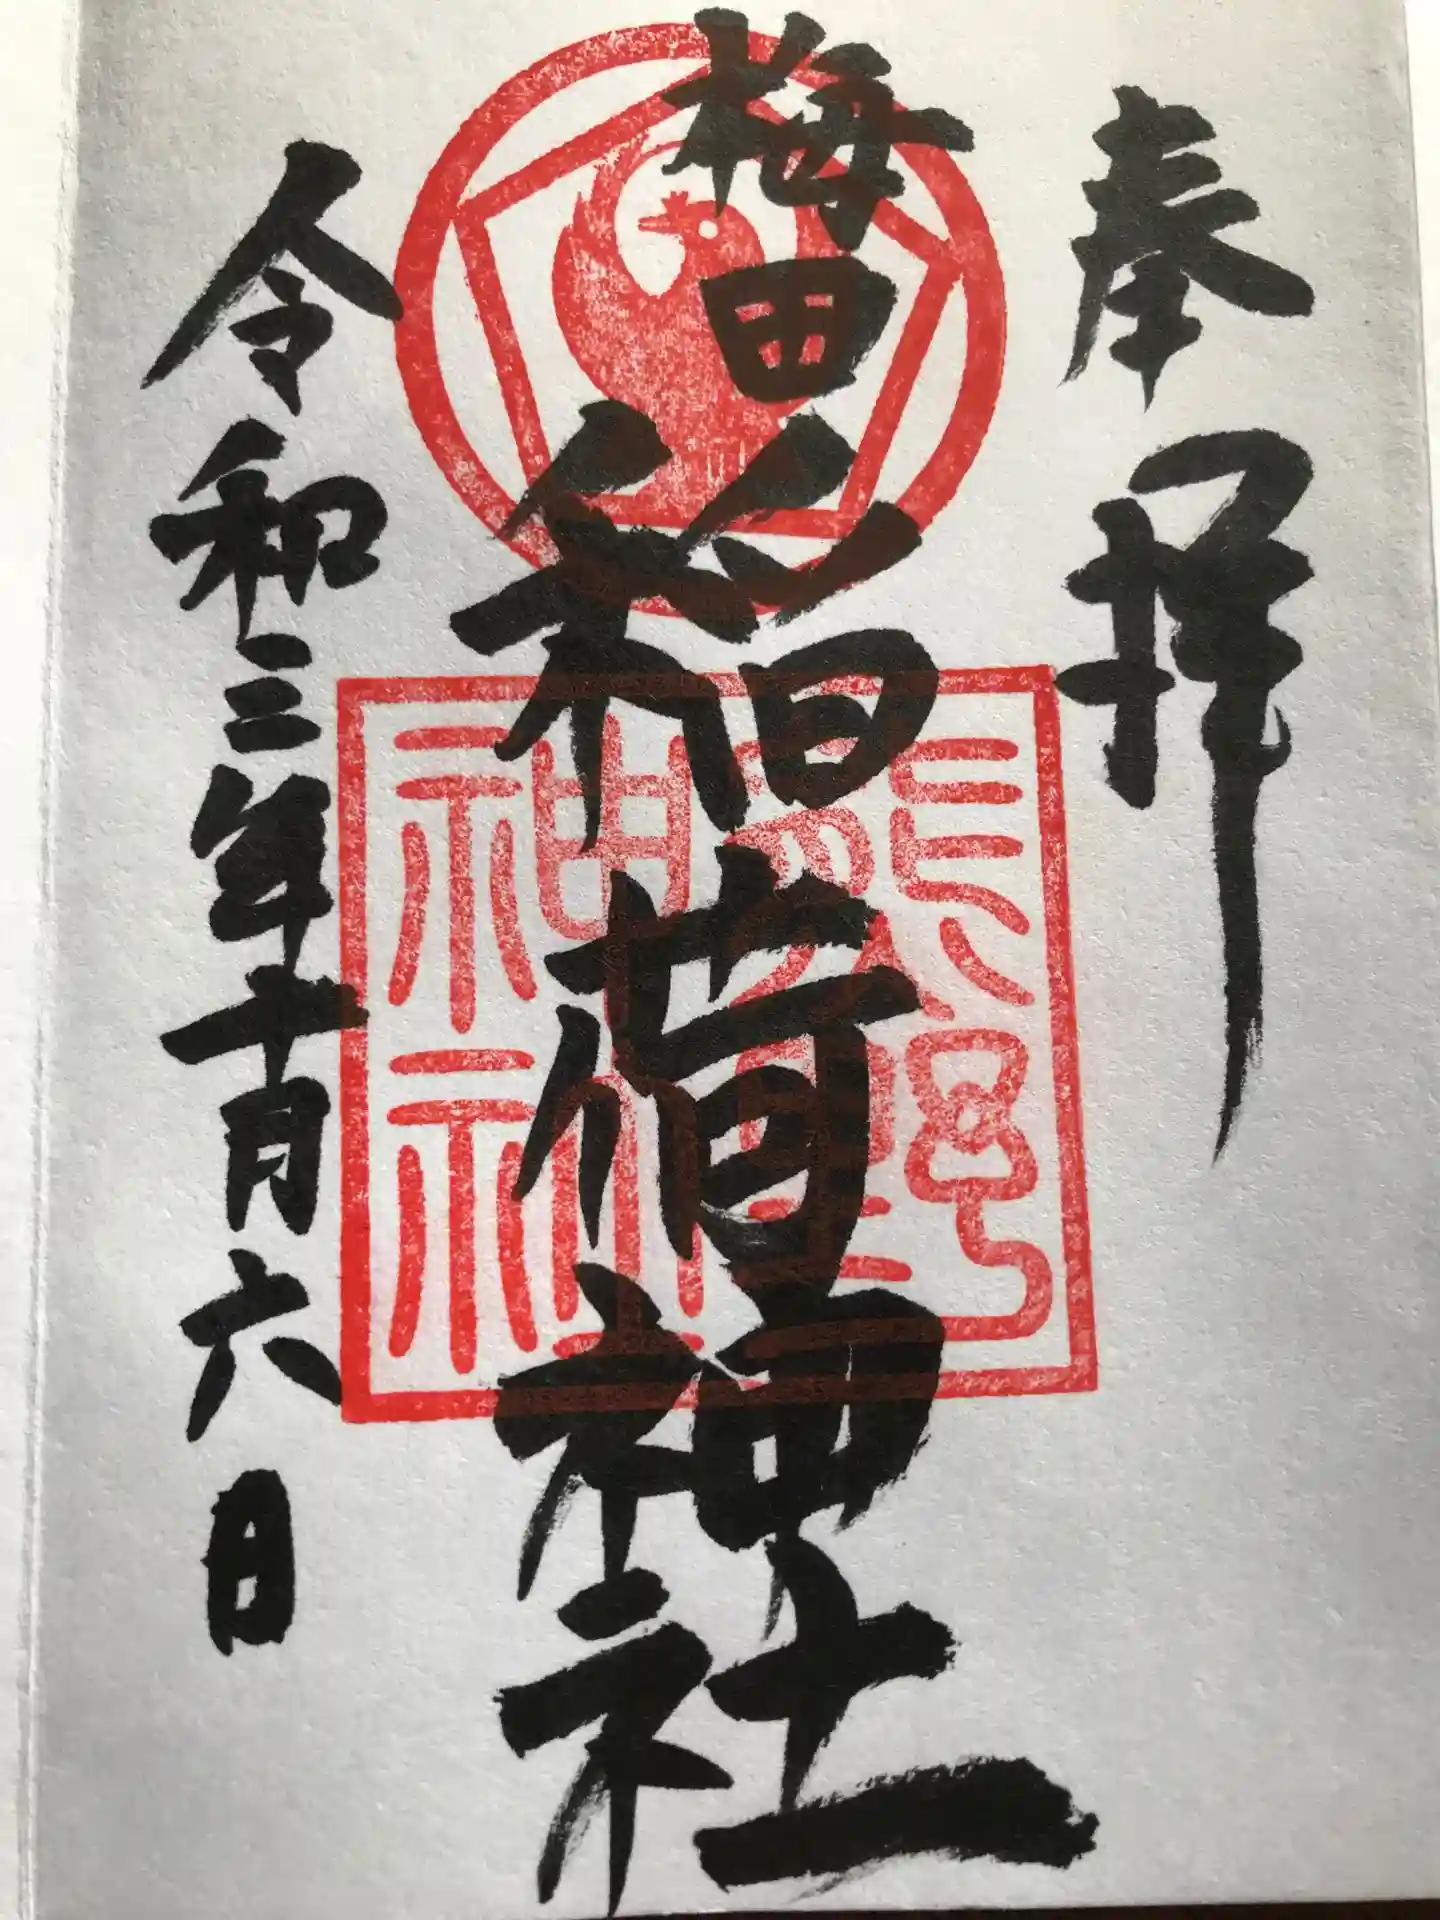 奉拝
梅田稲荷神社
令和三年十月六日
熊野
神社